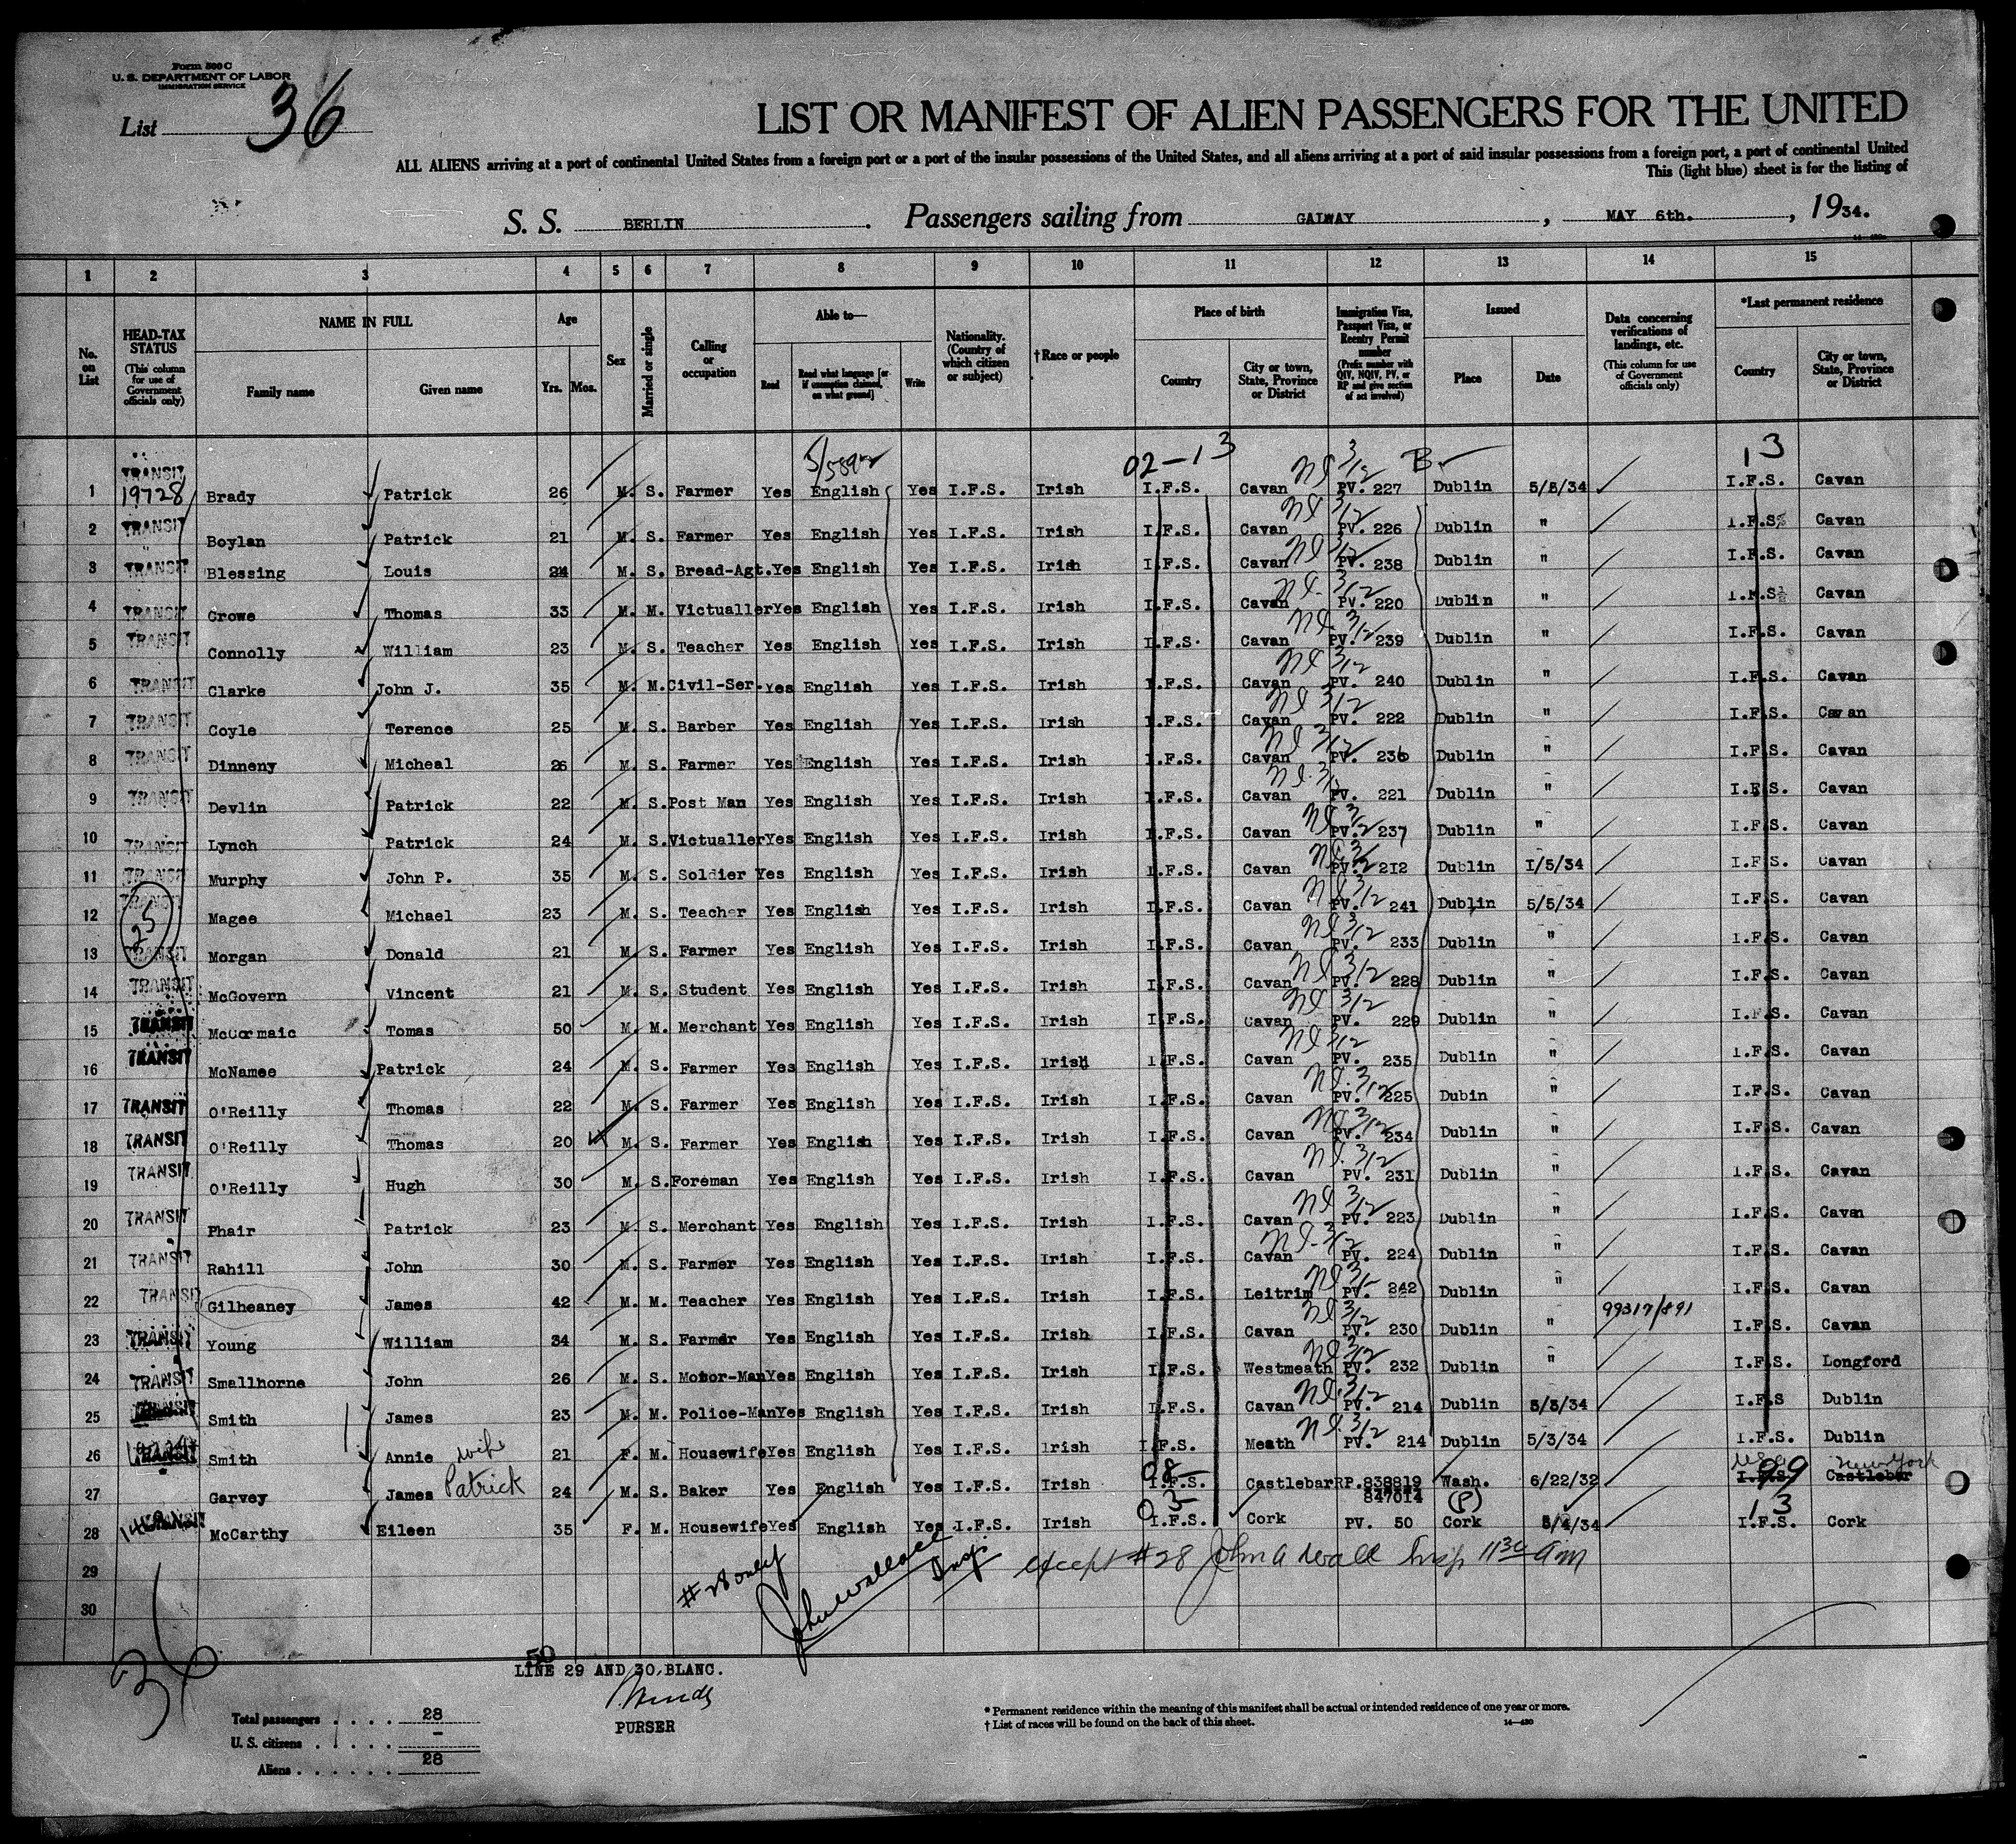 Form 500 C
U. S. DEPARTMENT OF LABOR
IMMIGRATION SERVICE
List 36
LIST OR MANIFEST OF ALIEN PASSENGERS FOR THE UNITED
ALL ALIENS arriving at a port of continental United States from a foreign port or a port of the insular possessions of the United States, and all aliens arriving at a port of said insular possessions from a foreign port, a port of continental United
This (light blue) sheet is for the listing of
S. S. BERLIN. Passengers sailing from GALWAY, MAY 6th., 1934.
1 2 3 4 5 6 7 8 9 10 11 12 13 14 15
No. on List
HEAD-TAX STATUS (This column for use of Government officials only)
NAME IN FULL Family name Given name
Age Yrs. Mos.
Sex
Married or single
Calling or occupation
Able to— Read Read what language [or if exemption claimed, on what ground] Write
Nationality. (Country of which citizen or subject)
†Race or people
Place of birth Country City or town, State, Province or District
Immigration Visa, Passport Visa, or Reentry Permit number (Prefix number with QIV, NQIV, PV, or RP and give section of act involved)
Issued Place Date
Data concerning verifications of landings, etc. (This column for use of Government officials only)
*Last permanent residence Country City or town, State, Province or District
02-13 3/12 B. 13
1 TRANSIT 19728 Brady Patrick 26 M. S. Farmer Yes English Yes I.F.S. Irish I.F.S. Cavan PV. 227 Dublin 5/5/34 I.F.S. Cavan
2 TRANSIT Boylan Patrick 21 M. S. Farmer Yes English Yes I.F.S. Irish I.F.S. Cavan 3/12 PV. 226 Dublin " I.F.S. Cavan
3 TRANSIT Blessing Louis 24 M. S. Bread-Agt. Yes English Yes I.F.S. Irish I.F.S. Cavan 3/12 PV. 238 Dublin " I.F.S. Cavan
4 TRANSIT Crowe Thomas 33 M. M. Victualler Yes English Yes I.F.S. Irish I.F.S. Cavan 3/12 PV. 220 Dublin " Cavan
5 TRANSIT Connolly William 23 M. S. Teacher Yes English Yes I.F.S. Irish I.F.S. Cavan 3/12 PV. 239 Dublin " I.F.S. Cavan
6 TRANSIT Clarke John J. 35 M. M. Civil-Ser. Yes English Yes I.F.S. Irish I.F.S. Cavan 3/12 PV. 240 Dublin " I.F.S. Cavan
7 TRANSIT Coyle Terence 25 M. S. Barber Yes English Yes I.F.S. Irish I.F.S. Cavan 3/12 PV. 222 Dublin " I.F.S. Cavan
8 TRANSIT Dinneny Micheal 26 M. S. Farmer Yes English Yes I.F.S. Irish I.F.S. Cavan 3/12 PV. 236 Dublin " I.F.S. Cavan
9 TRANSIT Devlin Patrick 22 M. S. Post Man Yes English Yes I.F.S. Irish I.F.S. Cavan PV. 221 Dublin " I.F.S. Cavan
10 TRANSIT Lynch Patrick 24 M. S. Victualler Yes English Yes I.F.S. Irish I.F.S. Cavan 3/12 PV. 237 Dublin " I.F.S. Cavan
11 TRANSIT Murphy John P. 35 M. S. Soldier Yes English Yes I.F.S. Irish I.F.S. Cavan 3/12 PV. 212 Dublin 1/5/34 I.F.S. Cavan
12 TRANSIT 25 Magee Michael 23 M. S. Teacher Yes English Yes I.F.S. Irish I.F.S. Cavan 3/12 PV. 241 Dublin 5/5/34 I.F.S. Cavan
13 TRANSIT Morgan Donald 21 M. S. Farmer Yes English Yes I.F.S. Irish I.F.S. Cavan 3/12 PV. 233 Dublin " I.F.S. Cavan
14 TRANSIT McGovern Vincent 21 M. S. Student Yes English Yes I.F.S. Irish I.F.S. Cavan 3/12 PV. 228 Dublin " I.F.S. Cavan
15 TRANSIT McCormaic Tomas 50 M. M. Merchant Yes English Yes I.F.S. Irish I.F.S. Cavan 3/12 PV. 229 Dublin " I.F.S. Cavan
16 TRANSIT McNamee Patrick 24 M. S. Farmer Yes English Yes I.F.S. Irish I.F.S. Cavan 3/12 PV. 235 Dublin " I.F.S. Cavan
17 TRANSIT O'Reilly Thomas 22 M. S. Farmer Yes English Yes I.F.S. Irish I.F.S. Cavan 3/12 PV. 225 Dubin " I.F.S. Cavan
18 TRANSIT O'Reilly Thomas 20 M. S. Farmer Yes English Yes I.F.S. Irish I.F.S. Cavan 3/12 PV. 234 Dublin " I.F.S. Cavan
19 TRANSIT O'Reilly Hugh 30 M. S. Foreman Yes English Yes I.F.S. Irish I.F.S. Cavan 3/12 PV. 231 Dublin " I.F.S. Cavan
20 TRANSIT Phair Patrick 23 M. S. Merchant Yes English Yes I.F.S. Irish I.F.S. Cavan 3/12 PV. 223 Dublin " I.F.S. Cavan
21 TRANSIT Rahill John 30 M. S. Farmer Yes English Yes I.F.S. Irish I.F.S. Cavan 3/12 PV. 224 Dublin " I.F.S. Cavan
22 TRANSIT Gilheaney James 42 M. M. Teacher Yes English Yes I.F.S. Irish I.F.S. Leitrim PV. 242 Dublin " I.F.S. Cavan
23 TRANSIT Young William 34 M. S. Farmer Yes English Yes I.F.S. Irish I.F.S. Cavan 3/12 PV. 230 Dublin " 99317/891 I.F.S. Cavan
24 TRANSIT Smallhorne John 26 M. S. Motor-Man Yes English Yes I.F.S. Irish I.F.S. Westmeath 3/12 PV. 232 Dublin " I.F.S. Longford
25 TRANSIT Smith James 23 M. M. Police-Man Yes English Yes I.F.S. Irish I.F.S. Cavan 3/12 PV. 214 Dublin 5/5/34 I.F.S Dublin
26 TRANSIT Smith Annie wife 21 F. M. Housewife Yes English Yes I.F.S. Irish I.F.S. Meath 3/12 PV. 214 Dublin 5/3/34 I.F.S. Dublin
27 Garvey James Patrick 24 M. S. Baker Yes English Yes I.F.S. Irish 08 I.F.S. Castlebar RP. 838819 847014 Wash. (P) 6/22/32 USA 99 I.F.S. New York Castlebar
28 TRANSIT McCarthy Eileen 35 F. M. Housewife Yes English Yes I.F.S. Irish 03 I.F.S. Cork PV. 50 Cork 5/4/34 13 I.F.S. Cork
29 #28 only John Wallace Insp. except #28 John A Wall Insp 11 30 am
30
36
50
LINE 29 AND 30, BLANC.
PURSER
Total passengers . . . . 28
U. S. citizens . . . . . –
Aliens . . . . . . 28
* Permanent residence within the meaning of this manifest shall be actual or intended residence of one year or more.
† List of races will be found on the back of this sheet. 14—430